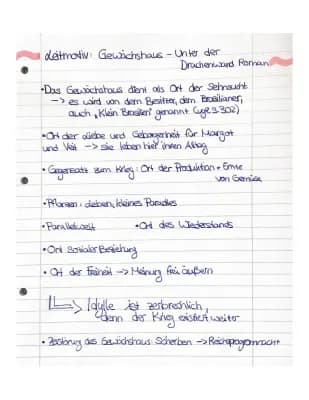 Leitmotiv: Gewächshaus - Unter der
Drachenwand Roman
•Das Gewächshaus dient als Ort der Sehnsucht
-> es wird von dem Besitzer, dem Brasilianer,
auch „Klein Brasilien" genannt (vgl. S. 302)
•Ort der Liebe und Geborgenheit für Margot
und Veit -> sie leben hier ihren Alltag
• Gegensatz zum Krieg: Ort der Produktion + Ernte
von Gemüse
•Pflanzen: bleiben, kleines Paradies
•Parallelwelt •Ort des Wiederstands
•Ort Sozialer Beziehung
• Ort der Freiheit -> Meinung frei äußern
-> Idylle ist zerbrechlich,
denn der Krieg existiert weiter
• Zerstörung des Gewächshaus: Scherben -> Reichspogromnacht